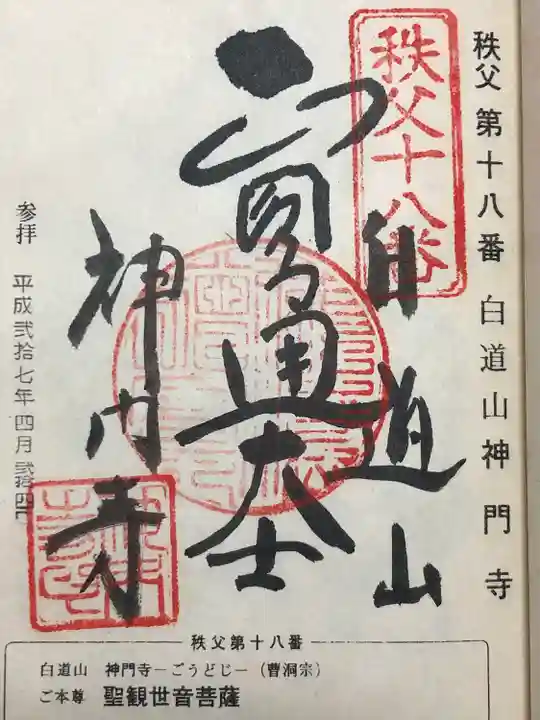 秩父第十八番 白道山神門寺
秩父十八番
白道山
圓通大士
神門寺
参拝 平成弐拾七年四月弐拾四日
秩父第十八番
白道山 神門寺－ごうどじ－(曹洞宗)
ご本尊 聖観世音菩薩